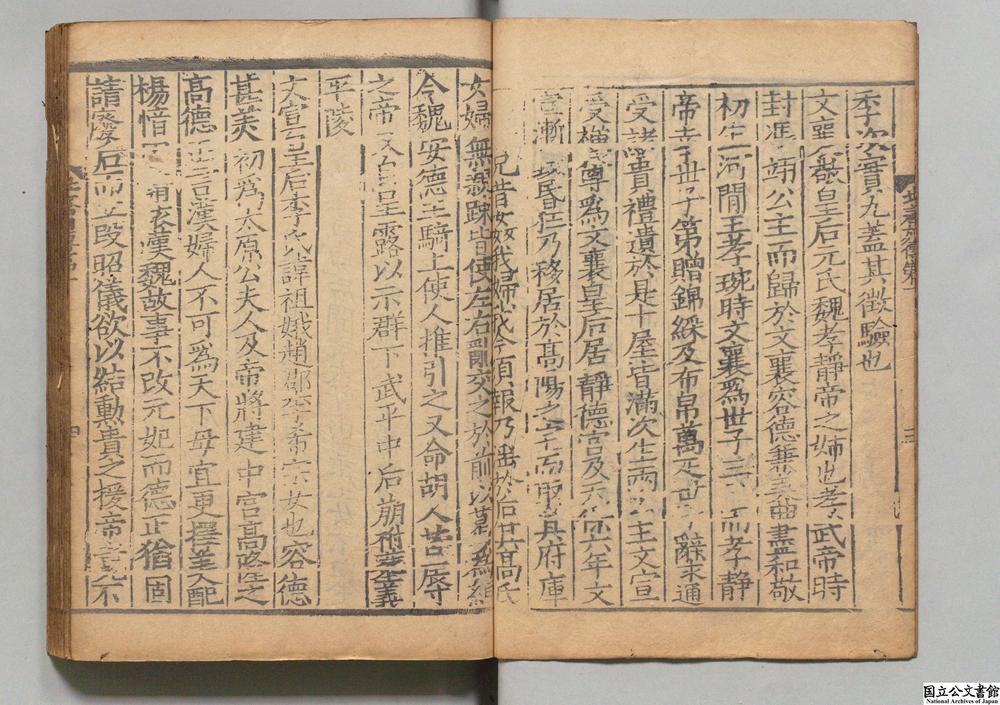 季次實九蓋其徵驗也
文襄敬皇后元氏魏孝靜帝之姊也孝武帝時
封馮翊公主而歸於文襄容德兼美曲盡和敬
初生河間王孝琬時文襄爲世子三日而孝靜
帝幸世子第贈錦綵及布帛萬疋世子辭求通
受諸貴禮遺於是十屋皆滿次生兩公主文宣
受禪尊爲文襄皇后居靜德宮及天保六年文
宣漸致昏狂乃移居於高陽之宅而取其府庫
兄昔姦我婦我今須報乃淫於后其高氏
女婦無親疎皆使左右亂交之於前以葛爲絙
令魏安德主騎上使人推引之又命胡人苦辱
之帝又自呈露以示群下武平中后崩祔葬義
平陵
文宣皇后李氏諱祖娥趙郡李希宗女也容德
甚美初爲太原公夫人及帝將建中宮高隆之
高德正言漢婦人不可爲天下母宜更擇美配
楊愔固請依漢魏故事不改元妃而德正猶固
請廢后而立段昭儀欲以結勳貴之援帝竟不
国立公文書館
National Archives of Japan